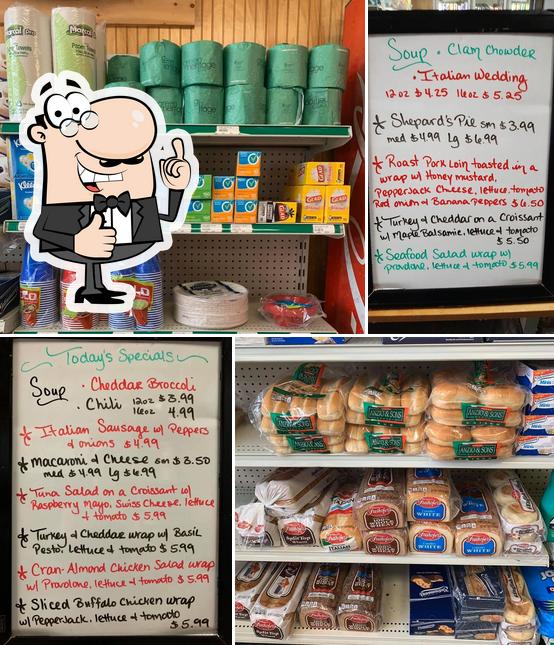 Marcal
Marcal
GLAD
GLAD
Soup • Clam Chowder
• Italian Wedding
12oz $4.25 16oz $5.25
* Shepard's Pie sm $3.99
med $4.99 Lg $6.99
* Roast Pork Loin toasted in a
wrap w/ Honey mustard,
PepperJack Cheese, lettuce, tomato
Red onion & Banana Peppers $6.50
* Turkey & Cheddar on a Croissant
w/ Maple Balsamic, lettuce & tomato
$5.50
* Seafood Salad wrap w/
provolone, lettuce & tomato $5.99
Today's Specials
Soup • Cheddar Broccoli
• Chili 12oz $3.99
16oz 4.99
* Italian Sausage w/ Peppers
& onions $4.99
* Macaroni & Cheese sm $3.50
med $4.99 Lg $6.99
* Tuna Salad on a Croissant w/
Raspberry Mayo, Swiss Cheese, lettuce
& tomato $5.99
* Turkey & Cheddar wrap w/ Basil
Pesto, lettuce & tomato $5.99
* Cran-Almond Chicken Salad wrap
w/ Provolone, lettuce & tomato $5.99
* Sliced Buffalo Chicken wrap
w/ PepperJack, lettuce & tomato
$5.99
WHITE
WHITE